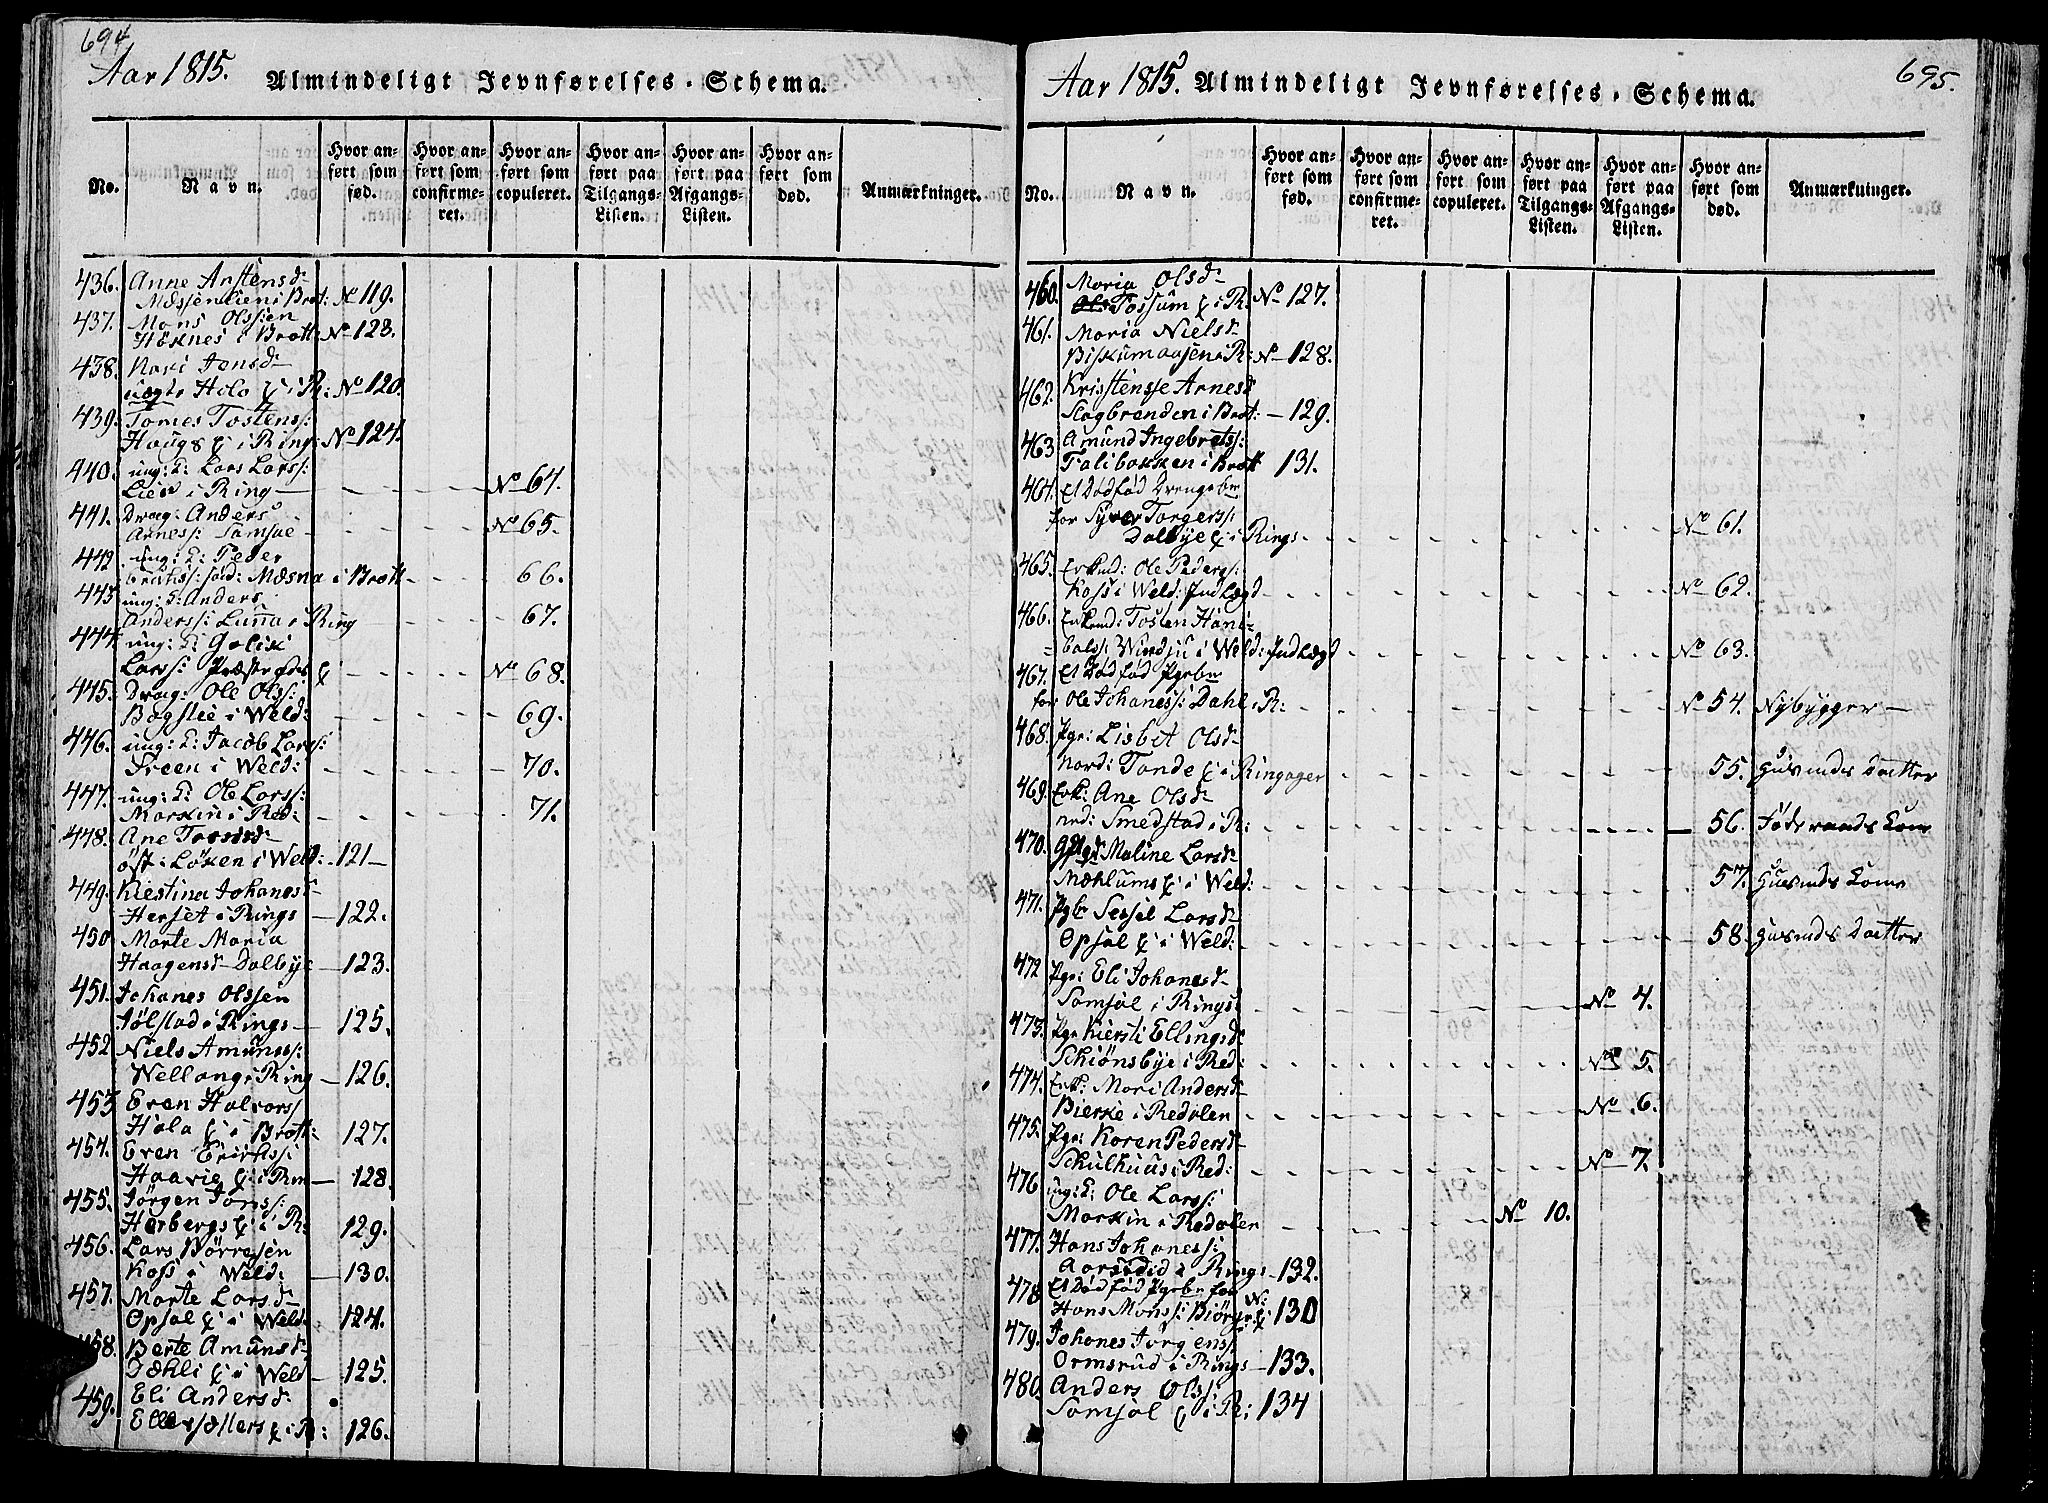 694
Aar 1815. Almindeligt Jevnførelses-Schema.
No. Navn. Hvor anført som fød. Hvor anført som confirmeret. Hvor anført som copuleret. Hvor anført paa Tilgangs-Listen. Hvor anført paa Afgangs-Listen. Hvor anført som død. Anmærkninger.
436. Anne Anstensd
Mæssenlien i Brot: No 119.
437. Mons Olssen
Höknes i Brott: No 123.
438. Kari Jensd
uægte Holo i R: No 120.
439. Tomes Tostens:
Haugs i Ring: No 124.
440. ung: K: Lars Lars:
Lien i Ring No 64.
441. Drag: Anders
Arness: Samsal No 65.
442. ung: K: Peder
Erikss: Mæsna i Brott 66.
443. ung: K: Anders
Anderss: Lunna i Ring 67.
444. ung: K: Golik
Larss: Præstegdes No 68.
445. Drag: Ole Olss:
Bagslie i Weld: 69.
446. ung: K: Jacob Larss:
Freen i Weld: 70.
447. ung: K: Ole Larss:
Morskin i Red: 71.
448. Ane
öst: Löken i Weld: 121
449. Kiestina Johanesd
Herset i Rings 122.
450. Marte Maria
Haagensd Dalbye 123.
451. Johanes Olssen
Jölstad i Rings 125.
452 Niels Amunss:
Wellang i Ring 126.
453 Even Halvors
Hala i Brott: 127.
454. Even Erikss:
Haavie i Rin 128.
455. Jörgen Jons:
Herbergs i R: 129.
456. Lars Börresen
Koss i Weld: 130.
457. Marte Larsd
Opsal i Weld: 124.
458. Berte Amunsd
Dæhli i Weld 125.
459. Eli Andersd
i R: 126.
695.
Aar 1815. Almindeligt Jevnførelses-Schema.
No. Navn. Hvor anført som fød. Hvor anført som confirmeret. Hvor anført som copuleret. Hvor anført paa Tilgangs-Listen. Hvor anført paa Afgangs-Listen. Hvor anført som død. Anmærkninger.
460. Maria Olsd
Tossum i R: No 127.
461. Maria Nielsd
Biskumaasen i R: No 128.
462. Kristense Arnesd
Slagbrenden i Brot: 129.
463 Amund Ingebretss:
Talibakken i Brott 131.
464. Et Dödföd Drengebn
for Syver Torgerss:
Dalbye i Rings No 61.
465. Enkmd: Ole Peders:
Koss i Weld: Indlægd No 62.
466. Enkemd: Tosten Hani-
balss: Windju i Weld: Indlægd No 63.
467. Et Dödföd Pgebn
for: Ole Johaness: Dahl i R: No 54. Nybygger
468. Pge: Lisbet Olsd
Nord: Tande i Ringager 55. Husmds Datter
469. Enk: Ane Olsd
nrd: Smedstad i R: 56. Föderaads Kone
470. Maline Larsd
Mæhlums i Weld: 57. Husmds Kone
471. Pgbn Sessel Larsd
Opsal i Weld: 58. Husmds Datter
472 Pge: Eli Johanesd
Samsal i Rings: No 4.
473. Pge Kiersti Ellingsd
Schiönsbye i Red: No 5.
474. Enk: Mari Andersd
Bierke i Redalen No 6.
475. Pge: Karen Pedersd
Schulhuus i Red: No 7.
476 ung: K: Ole Larss:
Morskin i Redalen No 10.
477. Hans Johaness:
i Rings 132.
478 Et Dödföd Pgebn for
Hans Monss: Biörge W: 130
479. Johanes Jörgens:
Ormsrud i Rings 133.
480. Anders Olss:
Samsal i R: 134